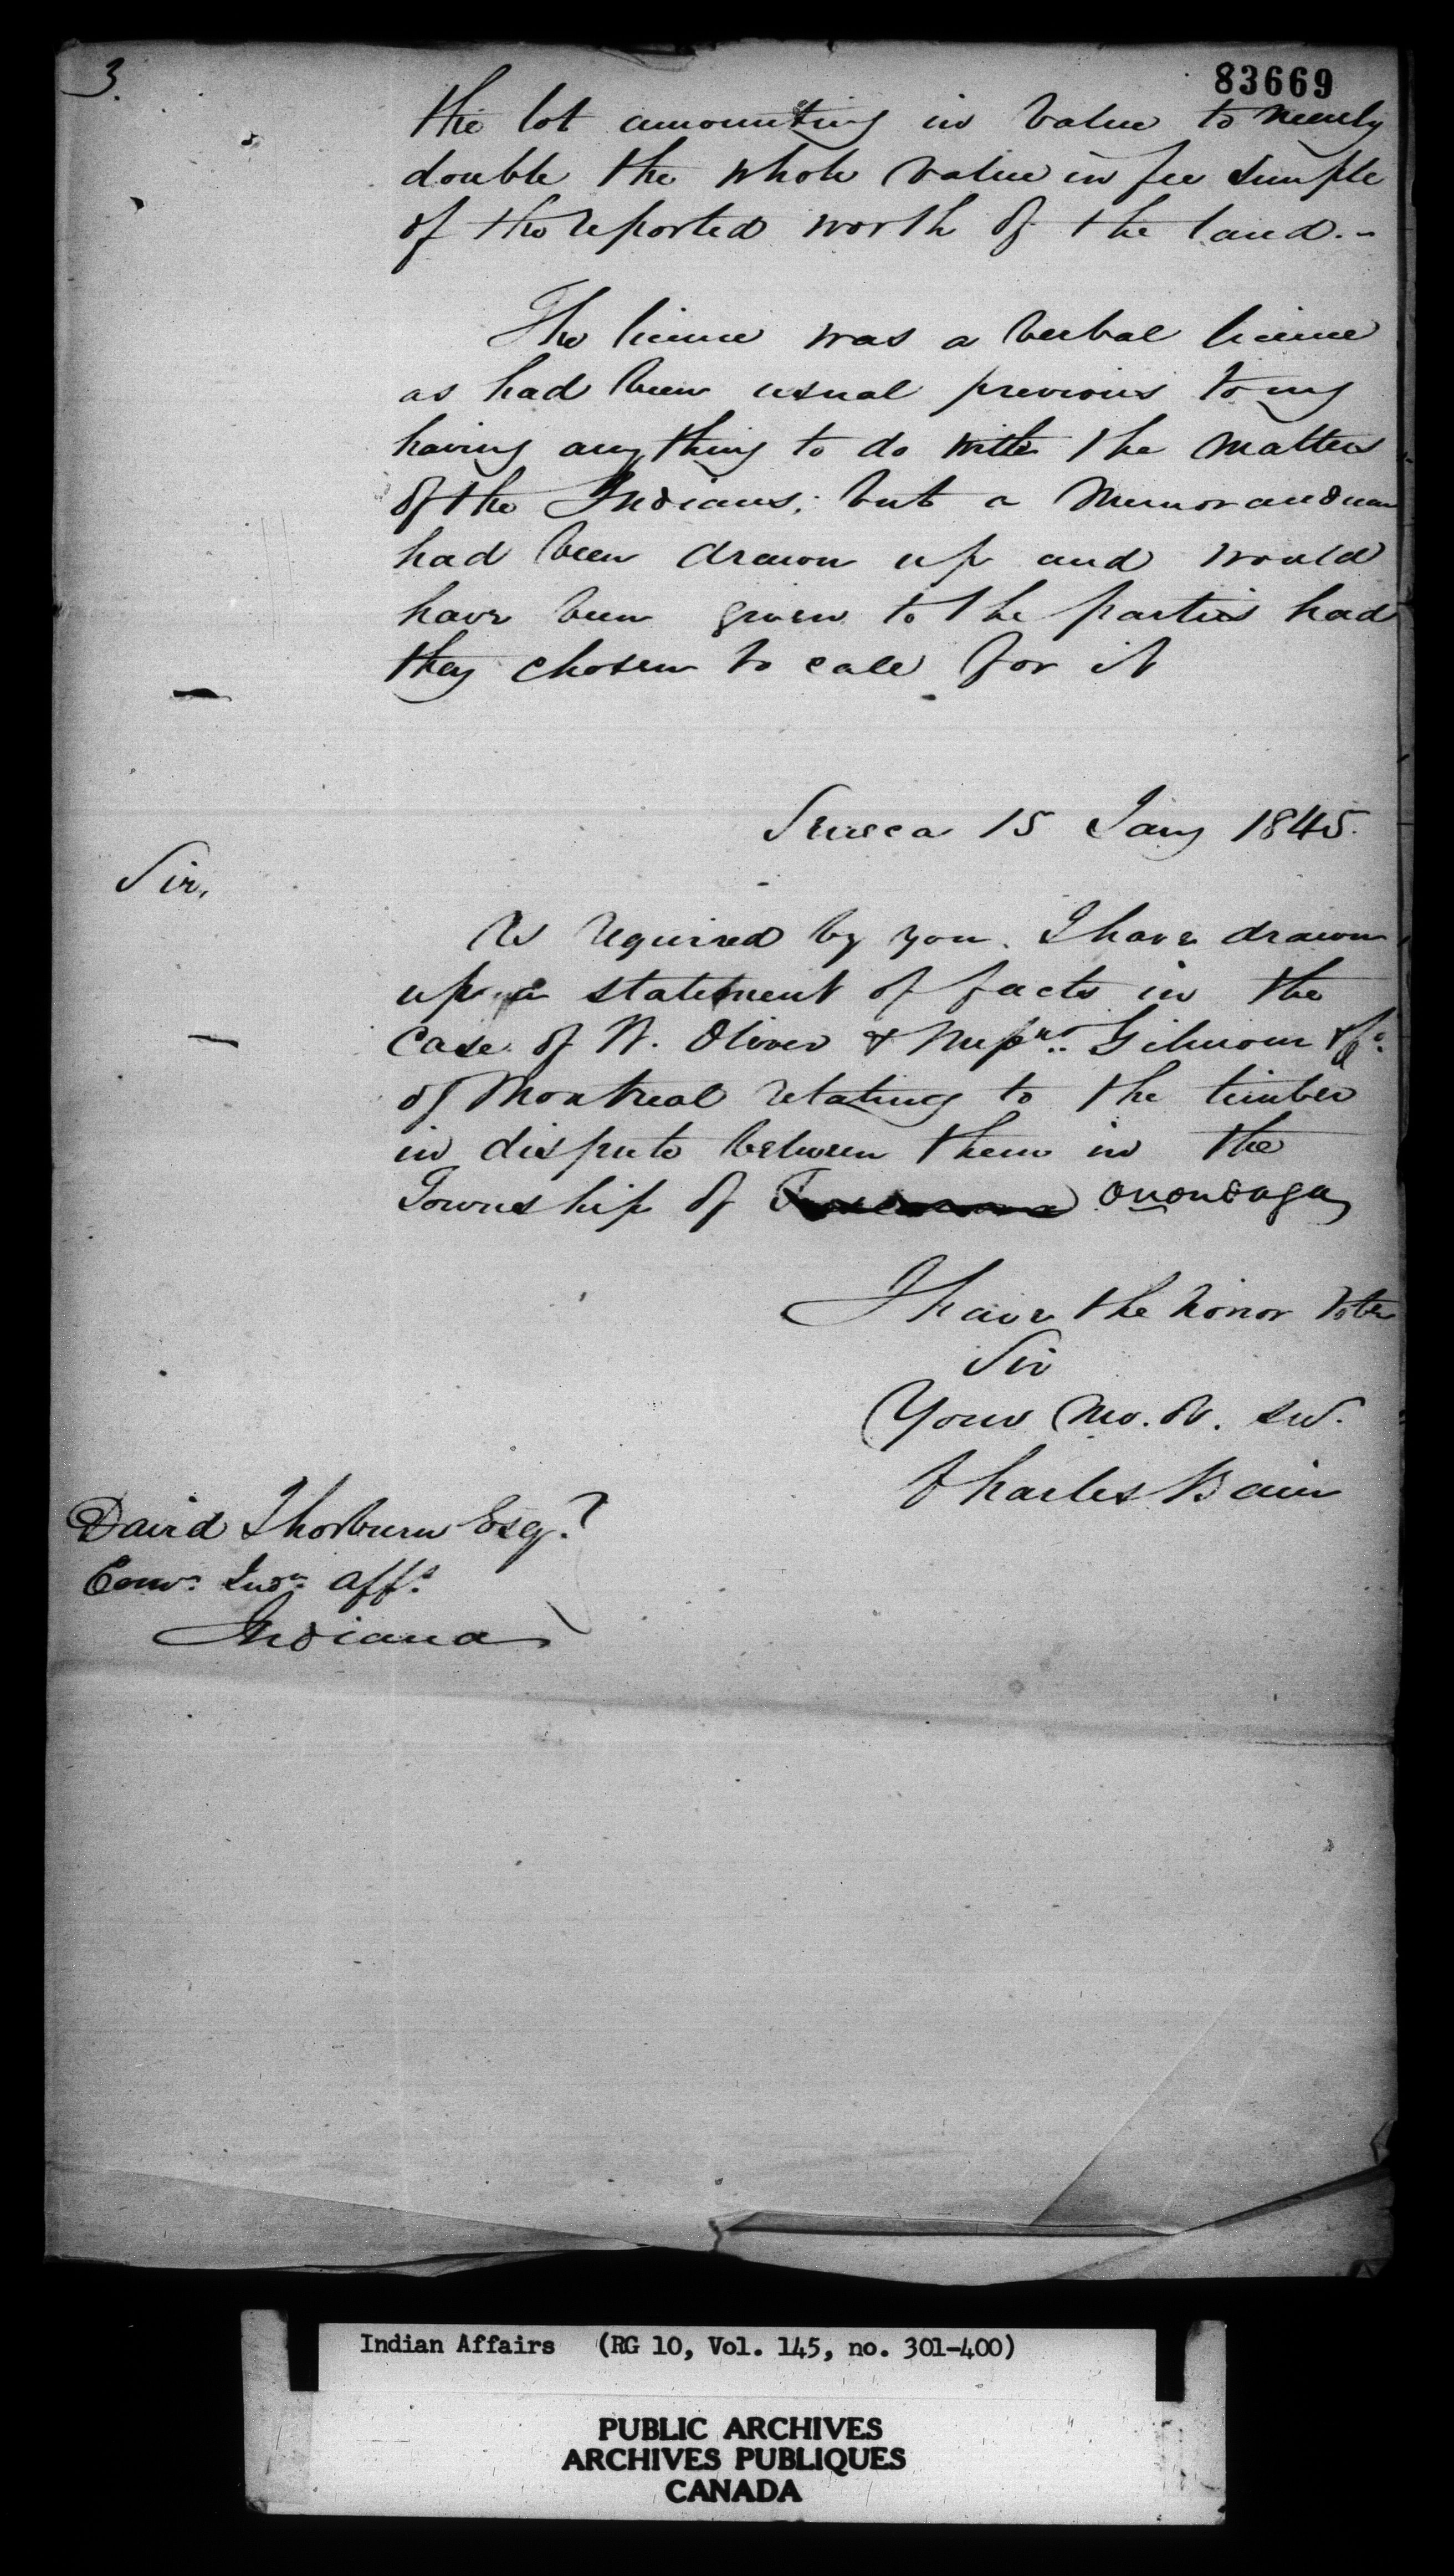 3.
83669
the lot amounting in value to nearly
double the whole value in fee simple
of the reported worth of the land.-
The licence was a verbal licence
as had been usual previous to my
having anything to do with the matters
of the Indians; but a Memorandum
had been drawn up and would
have been given to the parties had
they chosen to call for it
Seneca 15 Jany 1845.
Sir,
As required by you. I have drawn
up a statement of facts in the
Case of W. Oliver & Messrs. Gilmour & Co.
of Montreal relating to the timber
in dispute between them in the
Township of Tuscarora Onondaga
I have the honor to be
Sir
Your Mo. O. Sw.
Charles Bain
David Thorburn Esqr.
Comr. Indn. Affs.
Indiana
Indian Affairs (RG 10, Vol. 145, no. 301-400)
PUBLIC ARCHIVES
ARCHIVES PUBLIQUES
CANADA